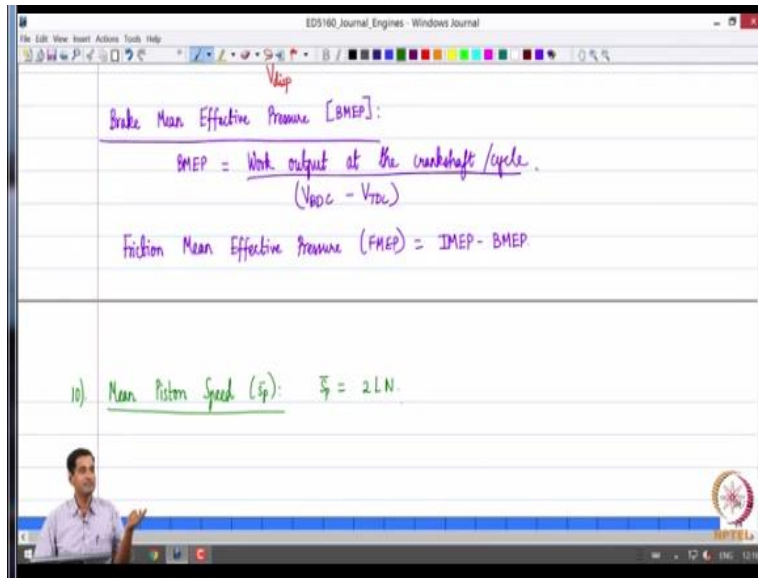 ED5160_Journal_Engines - Windows Journal
File Edit View Insert Actions Tools Help
V_disp
Brake Mean Effective Pressure [BMEP]:
BMEP = Work output at the crankshaft /cycle.
(V_BDC - V_TDC)
Friction Mean Effective Pressure (FMEP) = IMEP - BMEP.
10). Mean Piston Speed (S̄p): S̄p = 2LN.
NPTEL
ENG